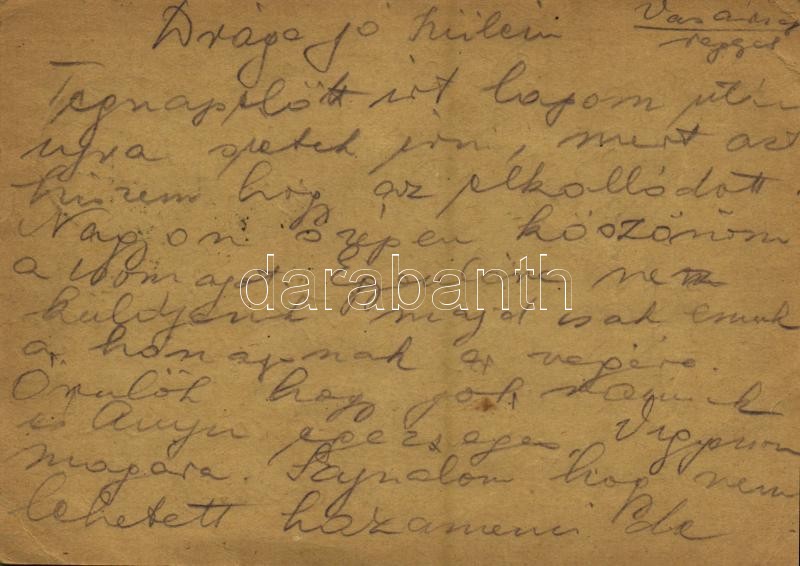 Vasárnap
reggel
Drága jó
Tegnapelőtt írt lapom után
ujra írni, mert azt
hiszem hogy az elkallódott.
Nagyon szépen köszönöm
a csomagot. Egyenlőre ne
küldjenek majd csak ennek
a hónapnak a végére.
Örülök hogy jól vannak
és Anyu egészséges. Vigyázzon
magára. Sajnálom hogy nem
lehetett hazamenni de
darabanth